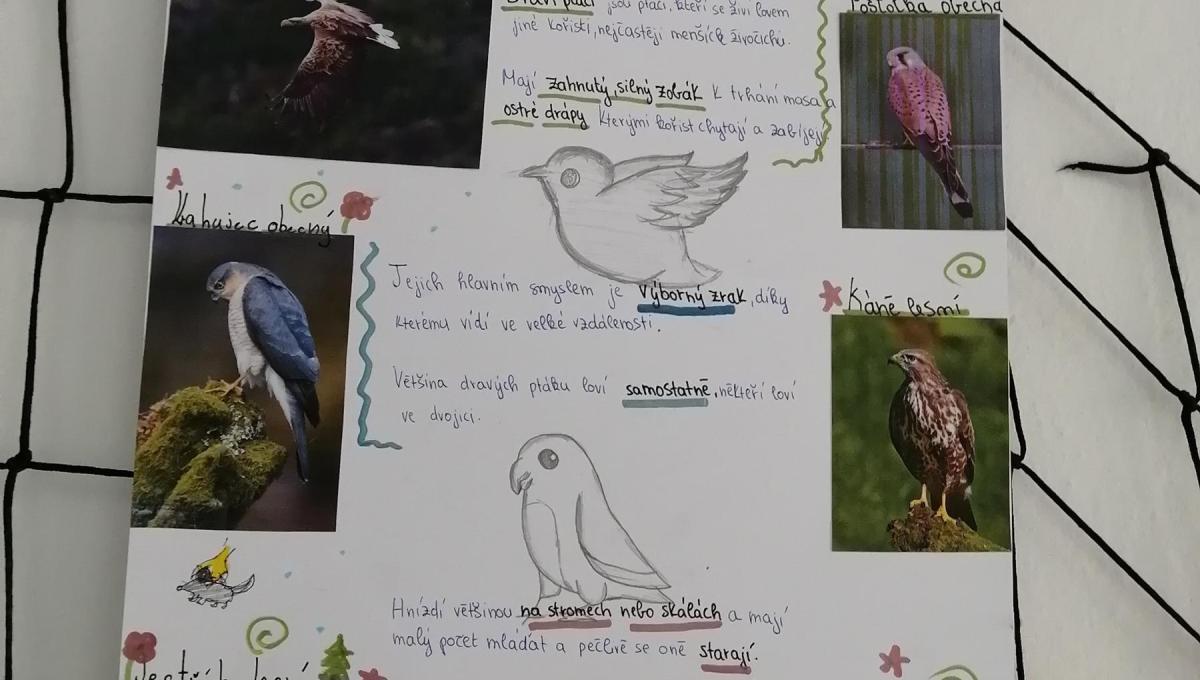 Draví ptáci jsou ptáci, kteří se živí lovem
jiné kořisti, nejčastěji menších živočichů.
Mají zahnutý, silný zobák k trhání masa a
ostré drápy kterými kořist chytají a zabíjejí
Poštolka obecná
Krahujec obecný
Jejich hlavním smyslem je výborný zrak, díky
kterému vidí ve velké vzdálerosti.
Káně lesní
Většina dravých ptáku loví samostatně, někteří loví
ve dvojici.
Hnízdí většinou na stromech nebo skálách a mají
malý počet mláďat a pečlivě se oně starají.
Jestřáb lesní